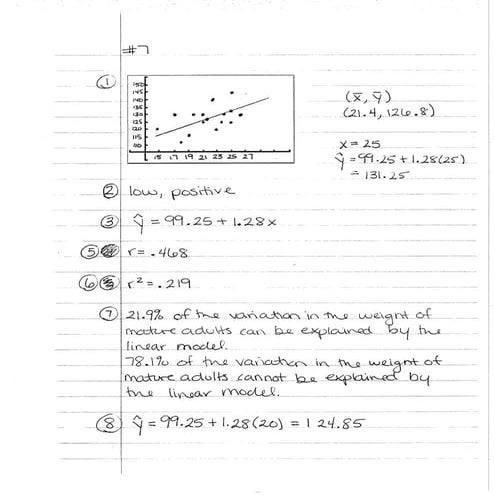 #7
①
150
145
140
135
130
125
120
115
110
15 17 19 21 23 25 27
(x̄, ȳ)
(21.4, 126.8)
x = 25
ŷ = 99.25 + 1.28(25)
= 131.25
② low, positive
③ ŷ = 99.25 + 1.28x
⑤ r = .468
⑥ r² = .219
⑦ 21.9% of the variation in the weight of
mature adults can be explained by the
linear model.
78.1% of the variation in the weight of
mature adults cannot be explained by
the linear model.
⑧ ŷ = 99.25 + 1.28(20) = 124.85